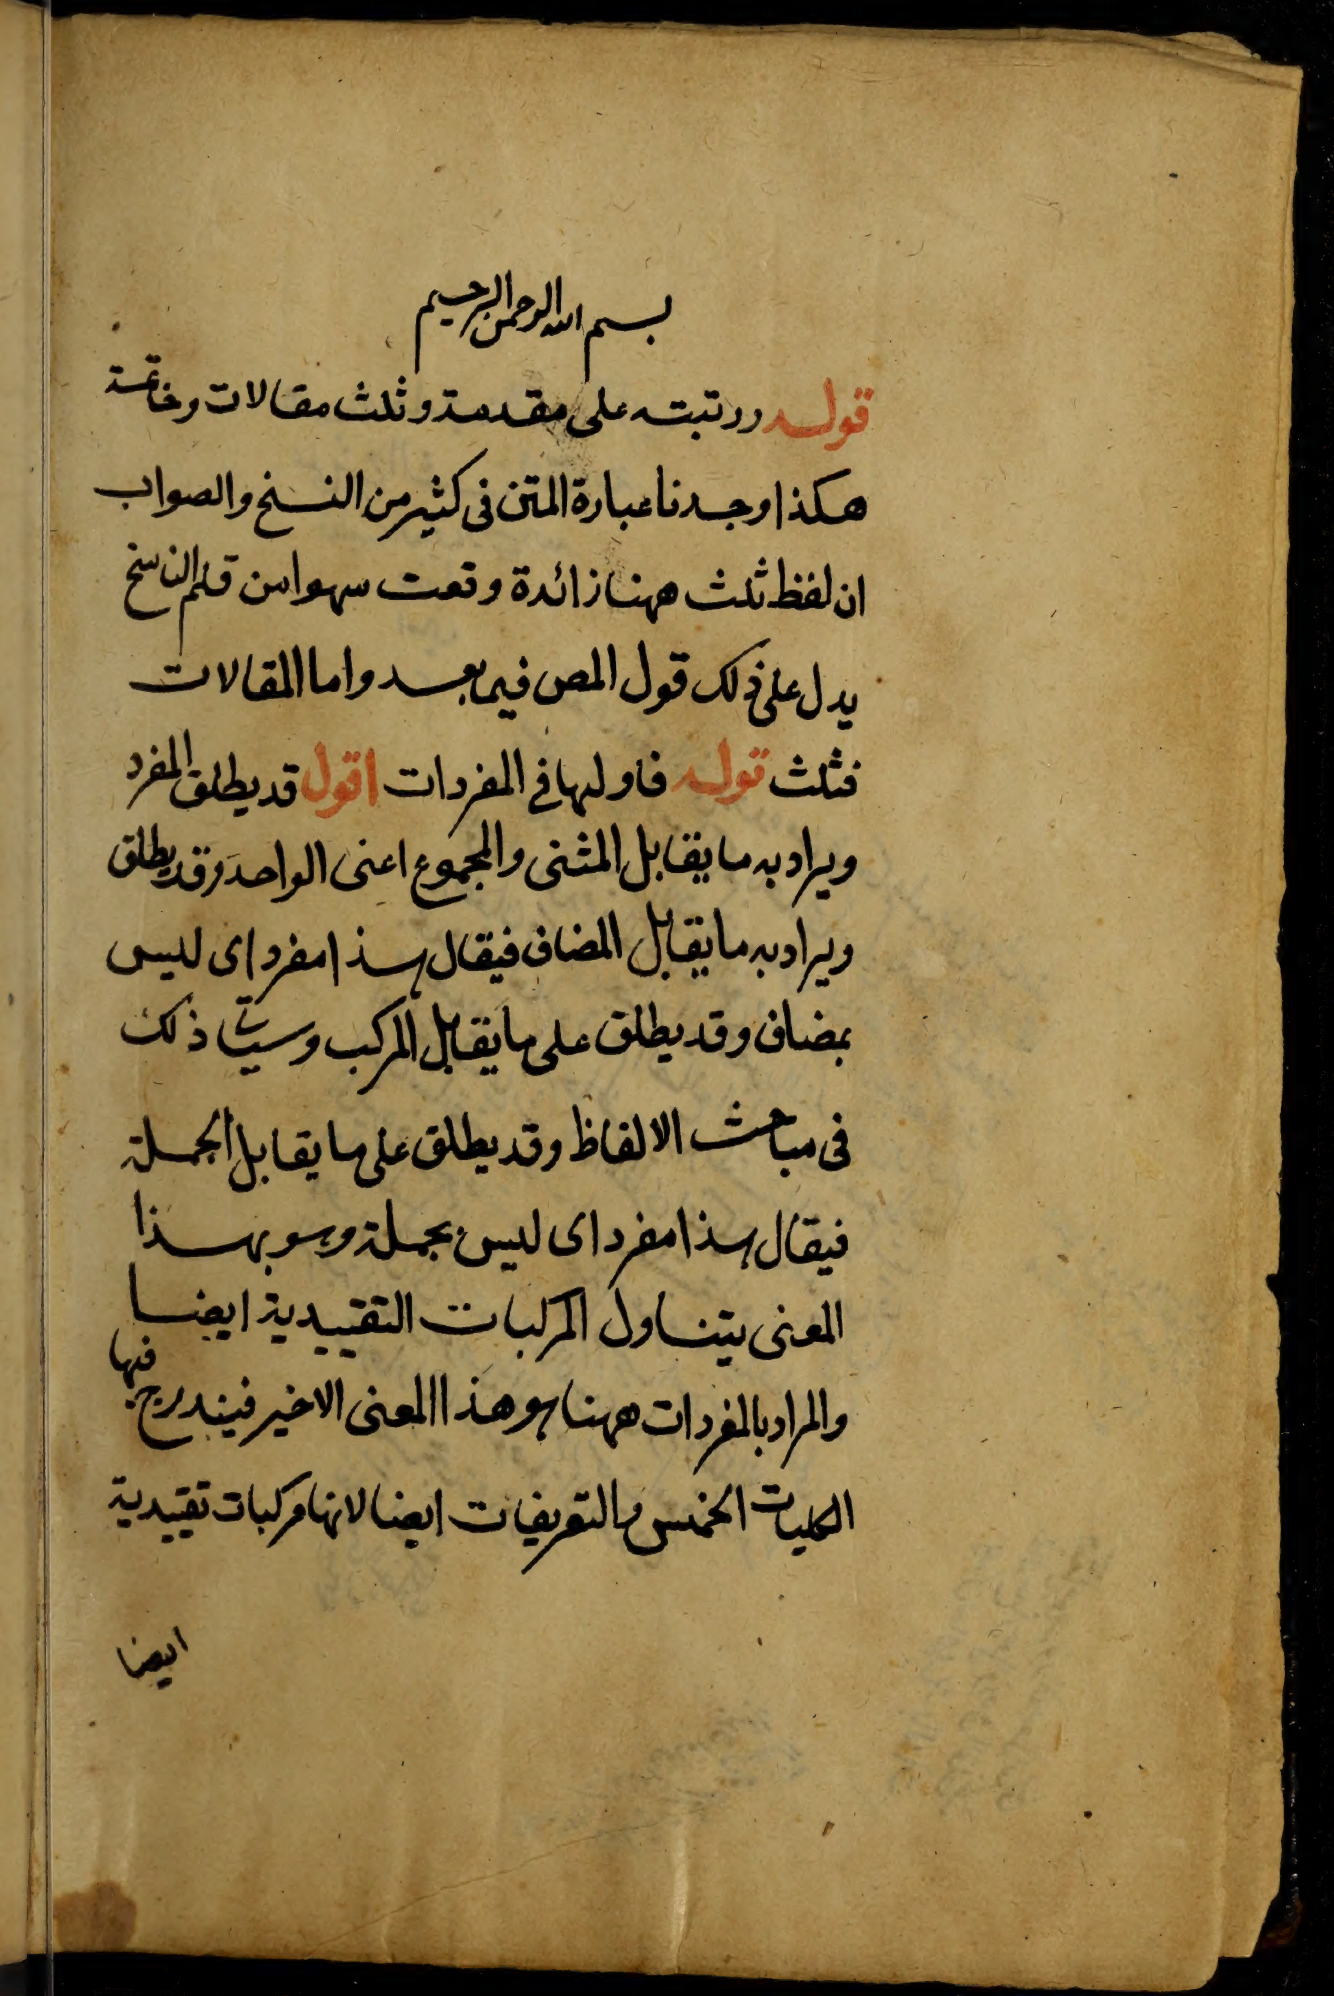 بسم الله الرحمن الرحيم
قوله ورتبته على مقدمة وثلث مقالات وخاتمة
هكذا وجدنا عبارة المتن فى كثير من النسخ والصواب
ان لفظ ثلث ههنا زائدة وقعت سهوا من قلم الناسخ
يدل على ذلك قول المص فيما بعد واما المقالات
فثلث قوله فاوليها فى المفردات اقول قد يطلق المفرد
ويراد به ما يقابل المثنى والمجموع اعنى الواحد وقد يطلق
ويراد به ما يقابل المضاف فيقال هذا مفرد اى ليس
بمضاف وقد يطلق على ما يقابل المركب وسيأتى ذلك
فى مباحث الالفاظ وقد يطلق على ما يقابل الجملة
فيقال هذا مفرد اى ليس بجملة وهو بهذا
المعنى يتناول المركبات التقييدية ايضا
والمراد بالمفردات ههنا هو هذا المعنى الاخير فيندرج فيها
الكليات الخمس والتعريفات ايضا لانها مركبات تقييدية
ايضا